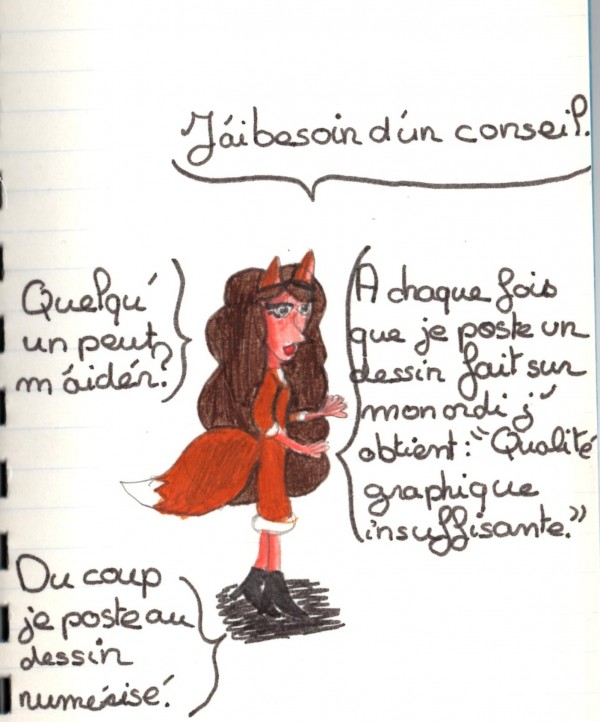 J'ai besoin d'un conseil.
Quelqu'
un peut
m'aider?
A chaque fois
que je poste un
dessin fait sur
mon ordi j'
obtient: "Qualité
graphique
insuffisante."
Du coup
je poste au
dessin
numérisé.